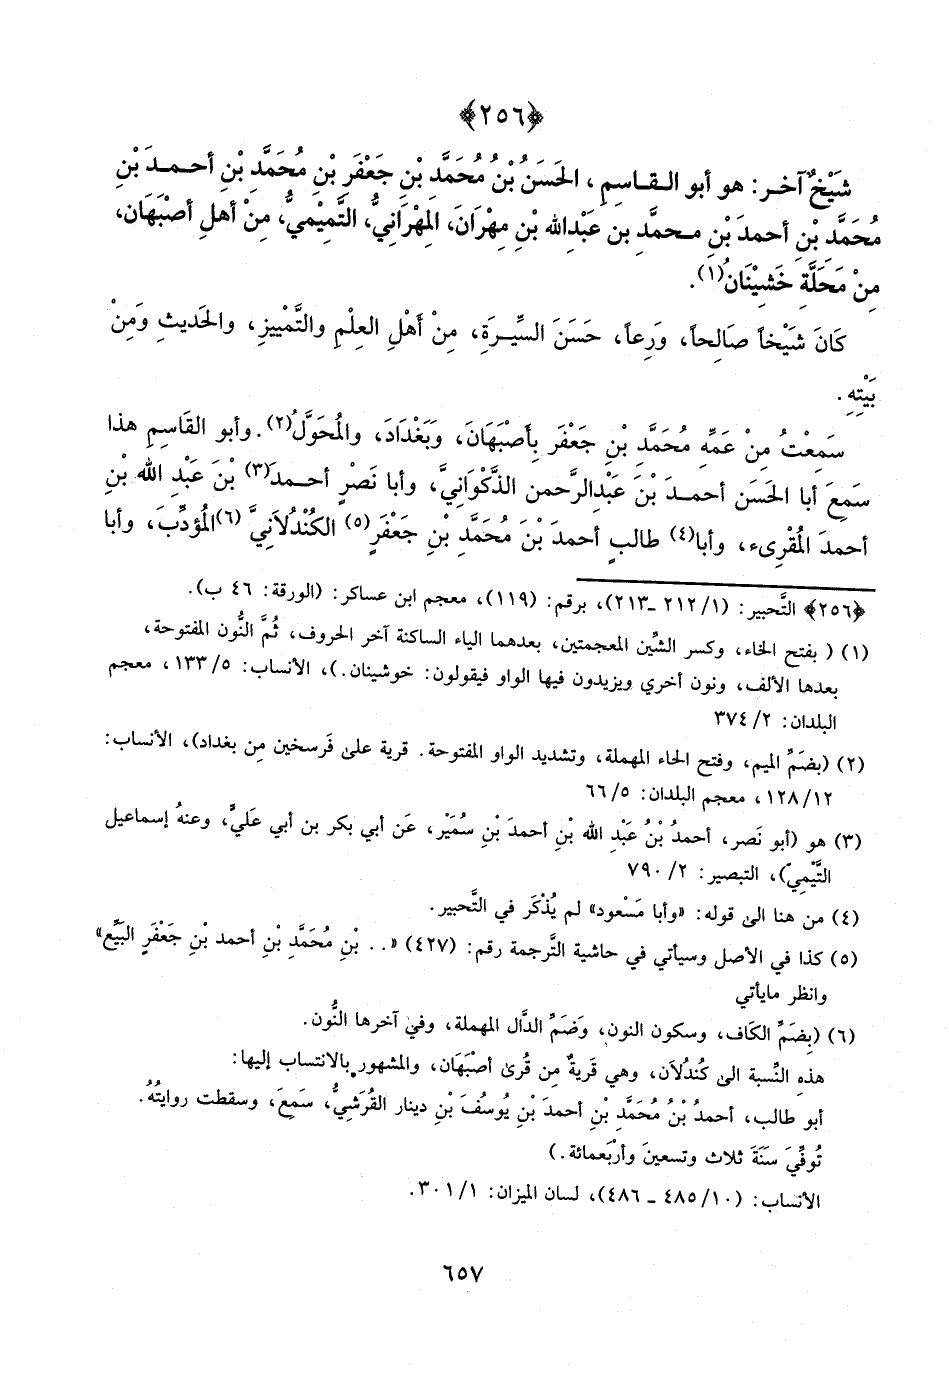 ﴿٢٥٦﴾
شَيْخٌ آخر: هو أبو القاسِمِ، الحَسَنُ بْنُ مُحَمَّدِ بْنِ جَعْفَرِ بْنِ مُحَمَّدِ بْنِ أحمدَ بْنِ
مُحَمَّدِ بْنِ أحمدَ بْنِ محمَّدِ بن عَبْدِالله بْنِ مِهْرَانَ، المِهْرَانيُّ، التَّمِيْميُّ، مِنْ أهلِ أصْبَهَان،
مِنْ مَحَلَّةِ خَشيْنَانُ(١).
كَانَ شَيْخاً صَالِحاً، وَرِعاً، حَسَنَ السِّيرَةِ، مِنْ أَهْلِ العِلْمِ والتَّمْييزِ، والحَديثِ وَمِنْ
بَيْتِهِ.
سَمِعْتُ مِنْ عَمِّهِ مُحَمَّدِ بْنِ جَعْفَر بِأَصْبَهَانَ، وَبَغْدَادَ، والمُحَوَّلُ(٢). وأبو القَاسِمِ هذا
سَمِعَ أبا الحَسَن أحمدَ بْنَ عَبْدِالرَّحمن الذَّكْوَانيَّ، وأبا نَصْرٍ أحمدَ(٣) بْنَ عَبْدِ الله بْنِ
أحمدَ المُقْرِىء، وأبا(٤) طالبٍ أحمدَ بْنَ مُحَمَّدِ بْنِ جَعْفَرٍ(٥) الكُنْدُلاَنيَّ(٦) المُؤدِّبَ، وأبا
﴿٢٥٦﴾ التَّحبير: (١/ ٢١٢ ـ ٢١٣)، برقم: (١١٩)، معجم ابن عساكر: (الورقة: ٤٦ ب).
(١) ( بفتح الخاء، وكسر الشِّين المعجمتين، بعدهما الياء الساكنة آخر الحروف، ثُمَّ النُّون المفتوحة،
بعدها الألف، ونون أخري ويزيدون فيها الواو فيقولون: خوشينان.)، الأنساب: ٥/ ١٣٣، معجم
البلدان: ٢/ ٣٧٤
(٢) (بضَمِّ الميم، وفتح الحاء المهملة، وتشديد الواو المفتوحة. قرية على فَرسخين مِن بغداد)، الأنساب:
١٢/ ١٢٨، معجم البلدان: ٥/ ٦٦
(٣) هو (أبو نَصر، أحمدُ بْنُ عَبْدِ الله بْنِ أحمدَ بْنِ سُمَيْر، عَن أبي بكر بن أبي عَليٍّ، وعنهُ إسماعيل
التَّيْمِيّ)، التبصير: ٢/ ٧٩٠
(٤) من هنا الى قوله: «وأبا مَسْعود» لم يُذْكَر في التَّحبير.
(٥) كذا في الأصل وسيأتي في حاشية التَّرجمة رقم: (٤٢٧) «.. بْنِ مُحَمَّدِ بْنِ أحمد بْنِ جَعْفَرٍ البَيِّع»
وانظر مايأتي
(٦) (بِضَمِّ الكَاف، وسكون النون، وَضَمِّ الدَّال المهملة، وفي آخرها النُّون.
هذهِ النِّسبة الى كُنْدُلاَن، وهي قَريةٌ مِن قُرىٰ أصْبَهَان، والمشهور بالانتساب إليها:
أبو طالب، أحمدُ بْنُ مُحَمَّدِ بْنِ أحمدَ بْنِ يُوسُفَ بْنِ دينار القُرَشيُّ، سَمِعَ، وسقطت روايتُهُ.
تُوفِّيَ سَنَةَ ثلاث وتسعينَ وأرْبَعمائة.)
الأنساب: (١٠/ ٤٨٥ ـ ٤٨٦)، لسان الميزان: ١/ ٣٠١.
٦٥٧